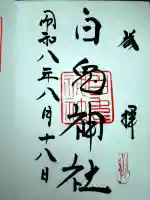 奉拝
白兎神社
昭和八年八月十八日